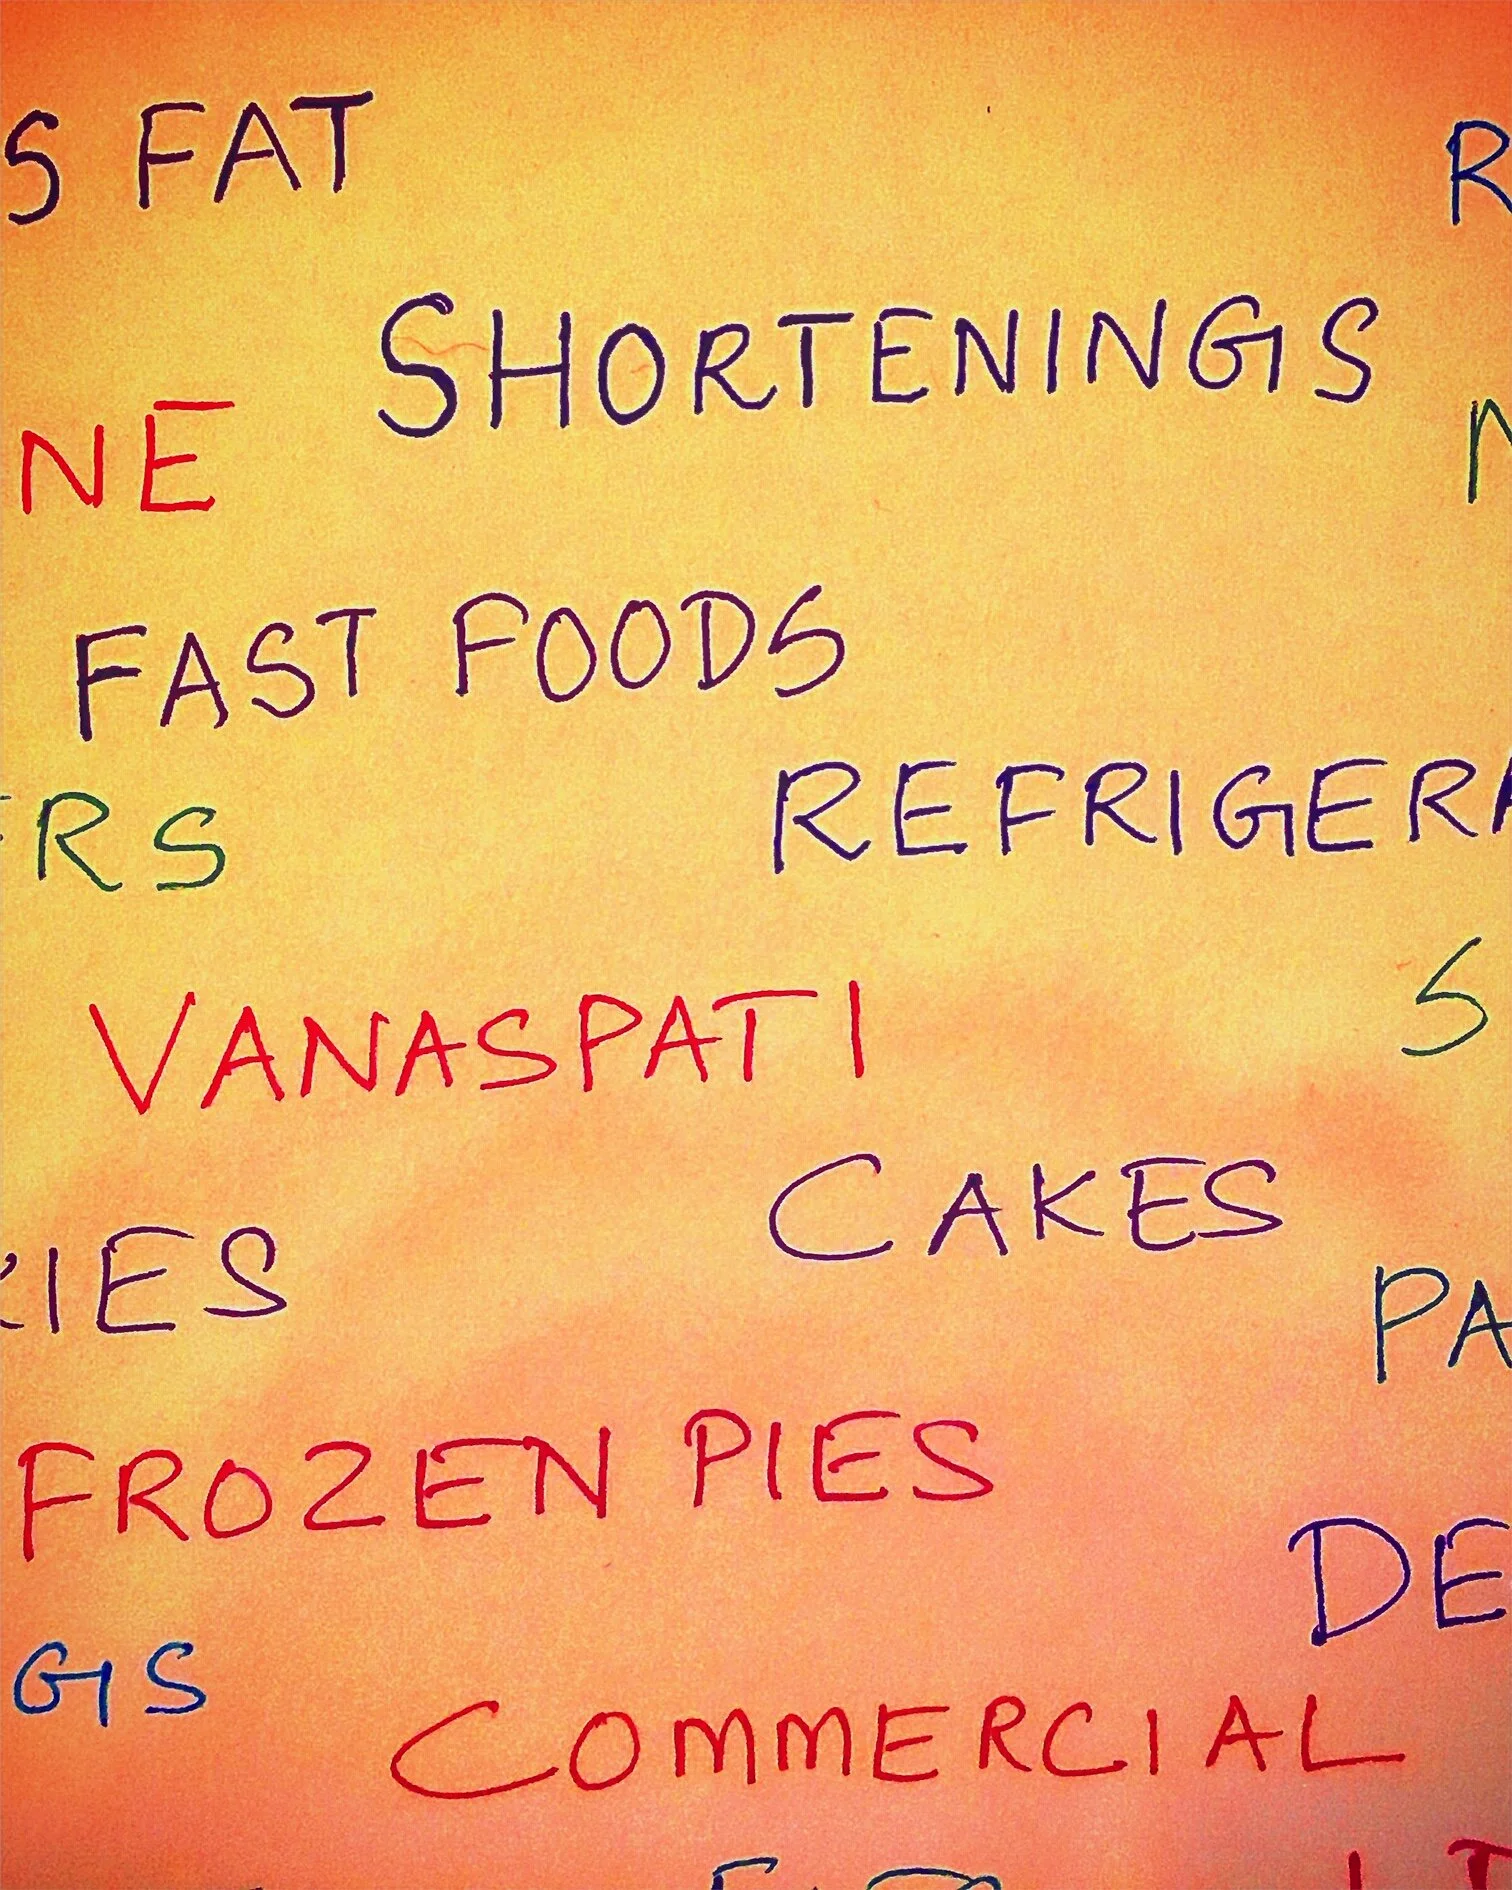 S FAT
SHORTENINGS
NE
FAST FOODS
RS
REFRIGERA
VANASPATI
S
CAKES
IES
PA
FROZEN PIES
DE
GS
COMMERCIAL